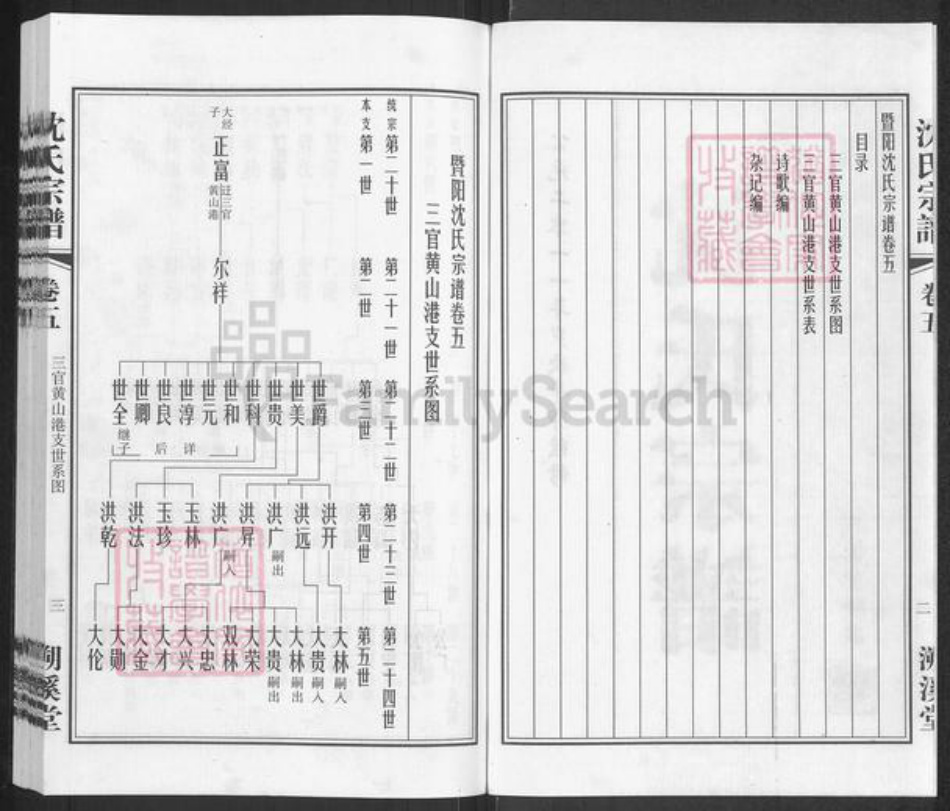 暨阳沈氏宗谱卷五
目录
三官黄山港支世系图
三官黄山港支世系表
诗歌编
杂记编
沈氏宗谱
卷五
二
溯溪堂
暨阳沈氏宗谱卷五
三官黄山港支世系图
统宗第二十世 第二十一世 第二十二世 第二十三世 第二十四世
本支第一世 第二世 第三世 第四世 第五世
大经子
正富 迁三官黄山港
尔祥
世爵 世美 世贵 世科 世和 世元 世淳 世良 世卿 世全 继子
后详
洪开 洪远 洪广 嗣出 洪昇 洪广 嗣入 玉林 玉珍 洪法 洪乾
大林 嗣入 大贵 嗣入 大林 嗣出 大贵 嗣出 大荣 双林 大忠 大兴 大才 大金 大勋 大伦
沈氏宗谱
卷五
三官黄山港支世系图
三
溯溪堂
FamilySearch